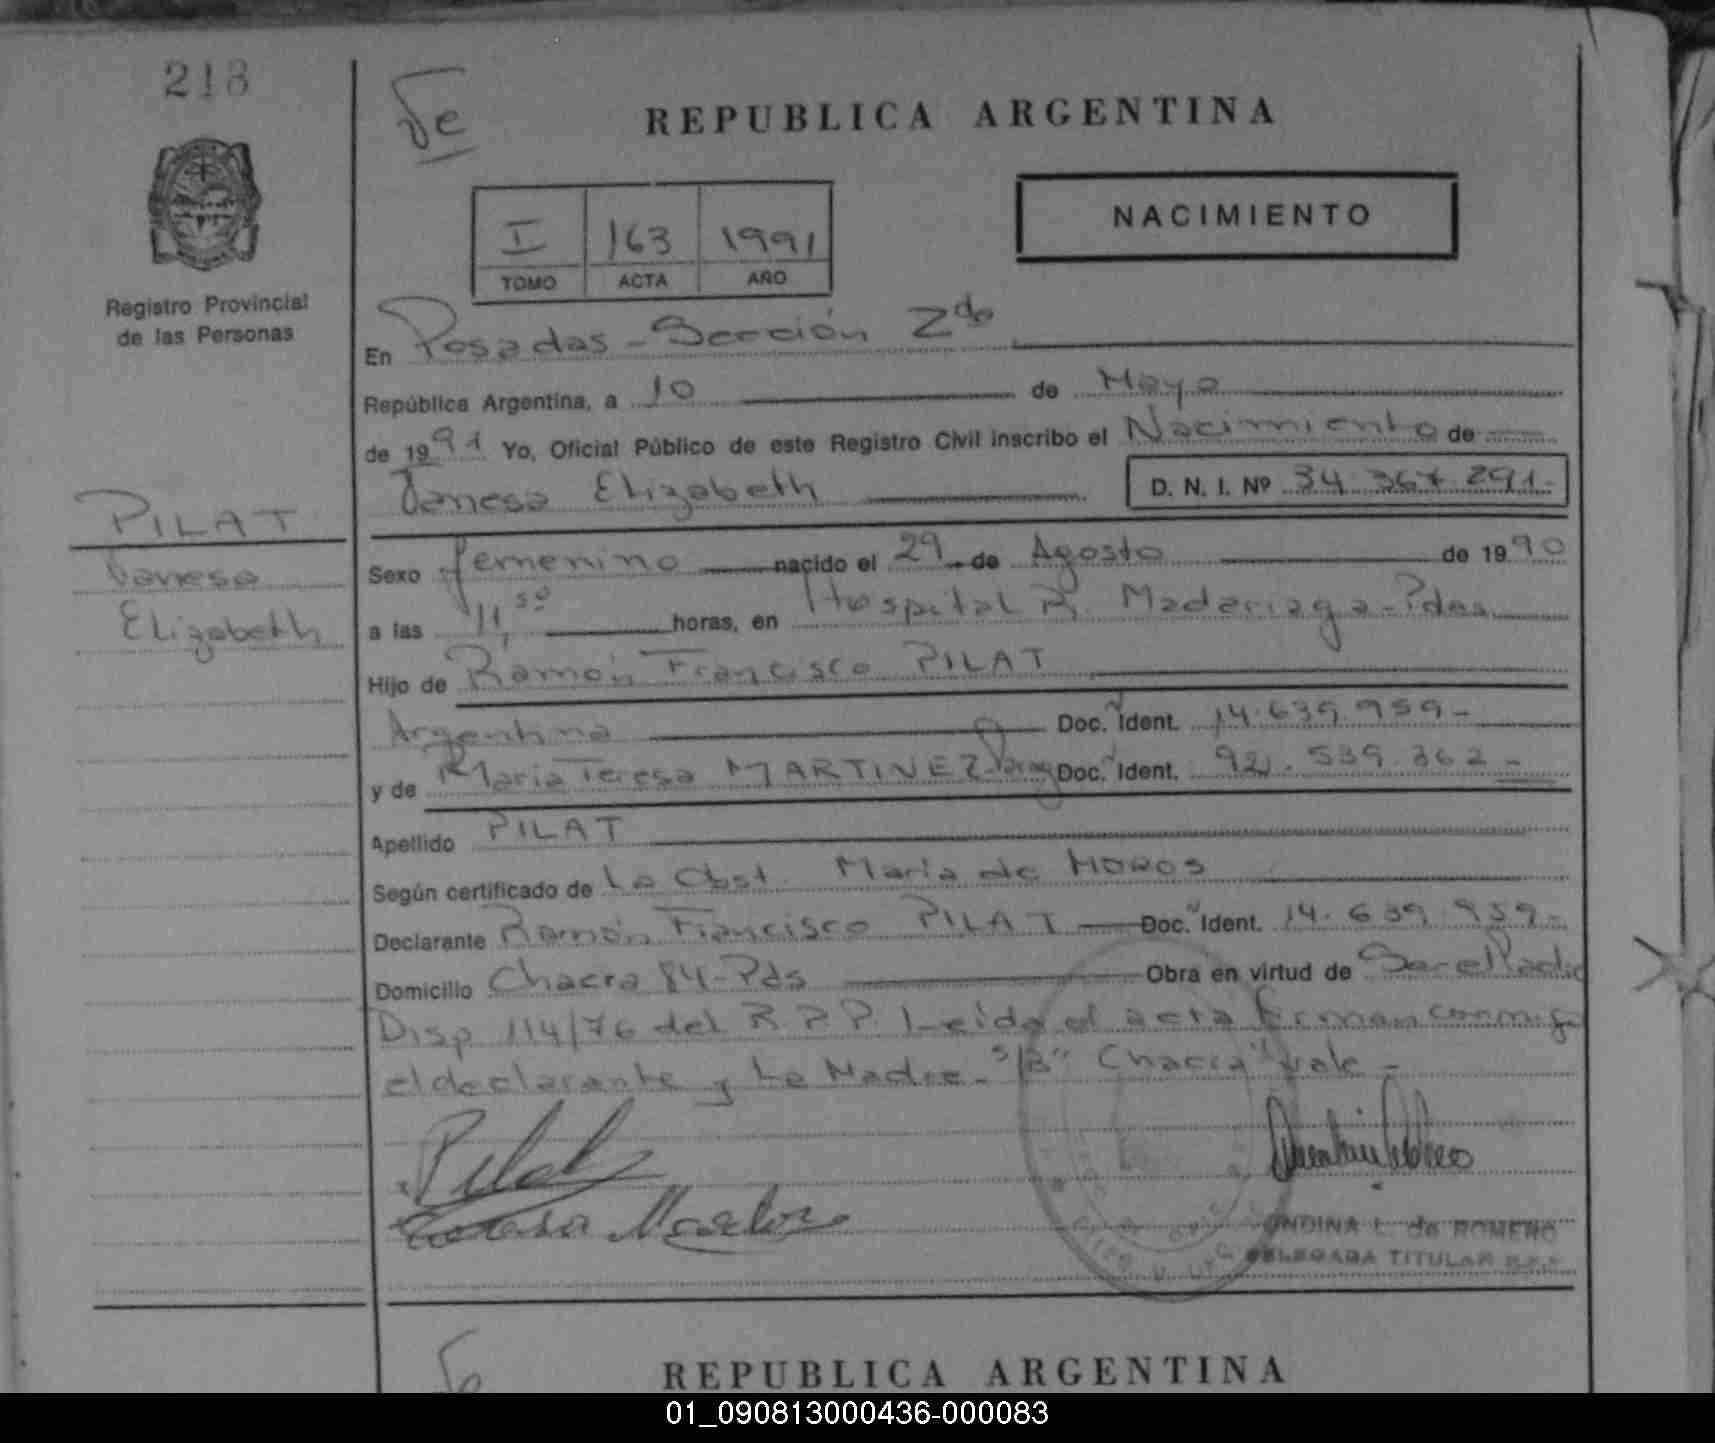 218
REPUBLICA ARGENTINA
I 163 1991
TOMO ACTA AÑO
NACIMIENTO
Registro Provincial
de las Personas
En Posadas - Sección 2da
República Argentina, a 10 de Mayo
de 1991 Yo, Oficial Público de este Registro Civil inscribo el Nacimiento de
Vanesa Elizabeth D. N. I. Nº 34.367.291-
PILAT
Vanesa
Elizabeth
Sexo femenino nacido el 29 de Agosto de 1990
a las 11,50 horas, en Hospital R. Madariaga - Pdas
Hijo de Ramón Francisco PILAT
Argentina Doc. Ident. 14.639.959-
y de Maria Teresa MARTINEZ Doc. Ident. 92.539.362-
Apellido PILAT
Según certificado de La Obst. María de
Declarante Ramón Francisco PILAT Doc. Ident. 14.639.959-
Domicilio Chacra 84-Pds Obra en virtud de Ser el Padre
Disp 114/76 del R.P.P. Leída el acta firman conmigo
el declarante y La Madre - S/B "Chacra" vale -
Pilat
Teresa
ONDINA L. de ROMERO
DELEGADA TITULAR
REPUBLICA ARGENTINA
01_090813000436-000083